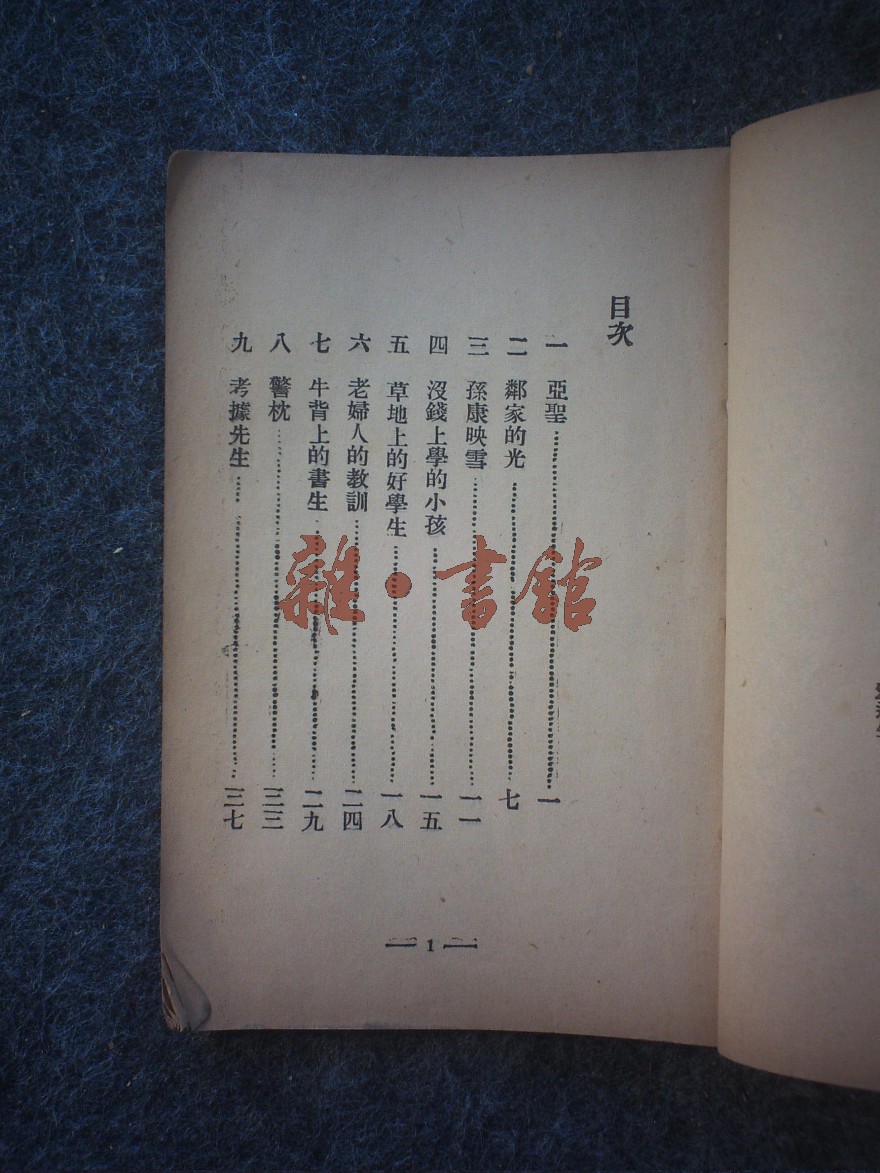 目次
一 亞聖 一
二 鄰家的光 七
三 孫康映雪 一一
四 沒錢上學的小孩 一五
五 草地上的好學生 一八
六 老婦人的教訓 二四
七 牛背上的書生 二九
八 警枕 三三
九 考據先生 三七
1
雜·書館